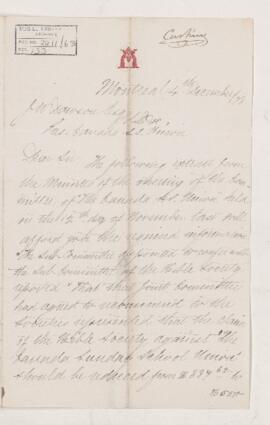 Cushing
M
Montreal 4th December
J W Dawson Esq
Pres. Canada S.S. Union
Dear Sir The following extract from
the Minutes of the meeting of the Com-
mittee of the Canada S.S. Union held
on the 12th day of November last will
afford you the required information
"The Sub Committee appointed to confer with
the Sub Committee of the Bible Society
reported "That their Joint Committee
had agreed to recommend to the
Societies represented that the claim
of the Bible Society against "The
Canada Sunday School Union"
should be reduced from $